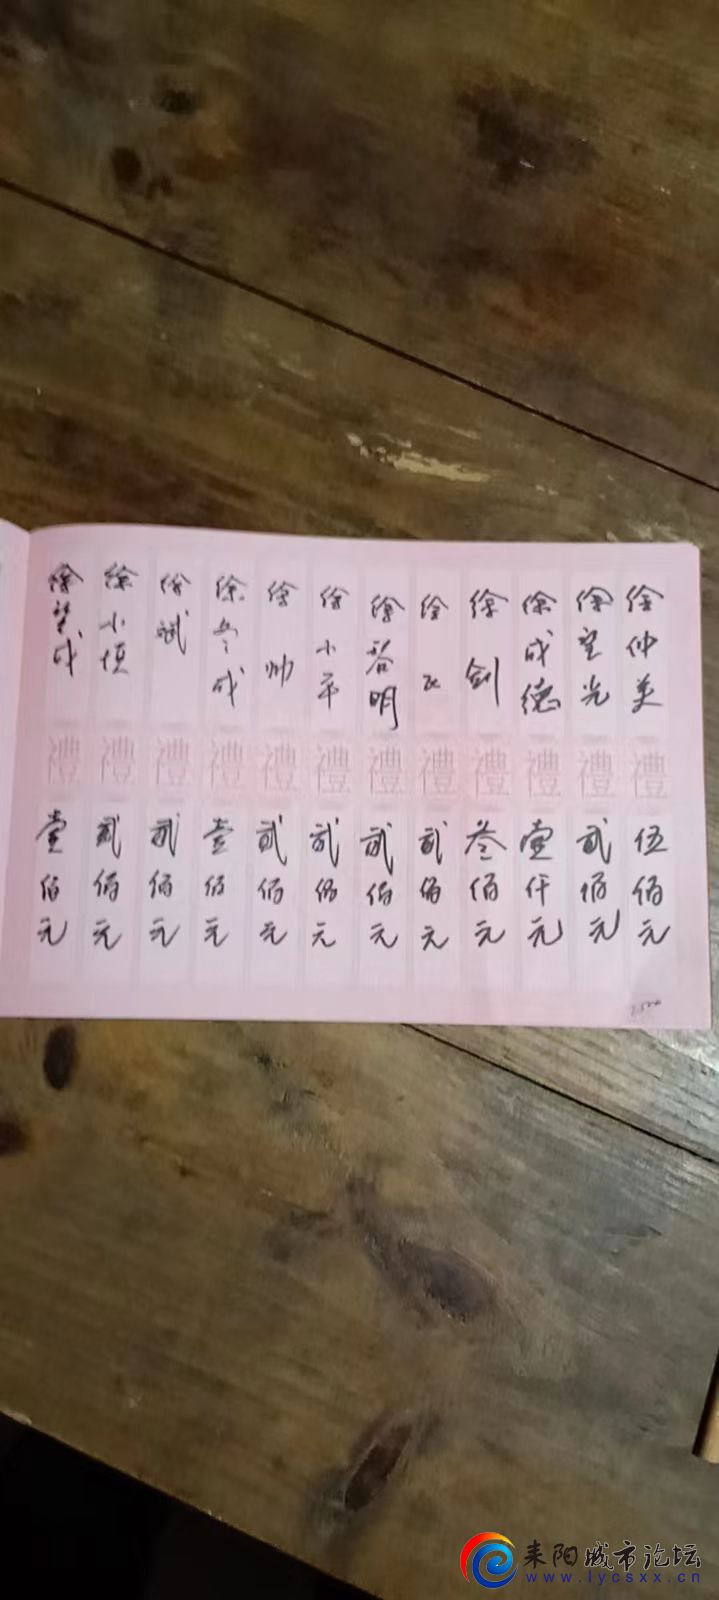 徐仲美 禮 伍佰元
徐宝光 禮 贰佰元
徐成德 禮 壹仟元
徐剑 禮 叁佰元
徐飞 禮 贰佰元
徐容明 禮 贰佰元
徐小平 禮 贰佰元
徐帅 禮 贰佰元
徐成 禮 壹佰元
徐斌 禮 贰佰元
徐小恒 禮 贰佰元
徐成 禮 壹佰元
耒阳城市论坛
www.lycsxx.cn